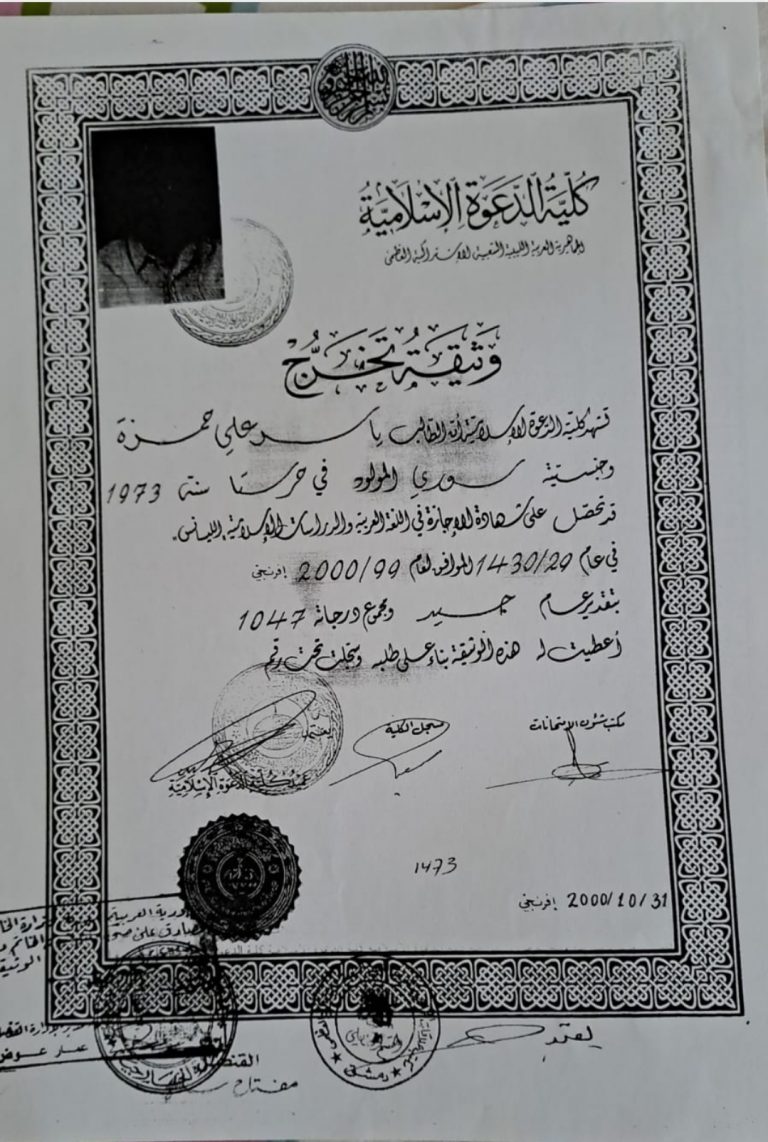 كُلِّيَّةُ الدَّعْوَةِ الإِسْلَامِيَّةِ
الجماهيرية العربية الليبية الشعبية الاشتراكية العظمى
وَثِيقَةُ تَخَرُّجْ
تشهد كلية الدعوة الإسلامية أن الطالب ياسر علي حمزة
وجنسيته سوري المولود في حرستا سنة 1973
قد تحصّل على شهادة الإجازة في اللغة العربية والدراسات الإسلامية الليسانس.
في عام 1430/29 الموافق لعام 2000/99 إفرنجي
بتقدير عام جيد ومجموع درجاته 1047
أعطيت له هذه الوثيقة بناء على طلبه وسجلت تحت رقم
مكتب شئون الامتحانات
مسجل الكلية
يعتمد
عميد كلية الدعوة الإسلامية
1473
2000/10/31 إفرنجي
يعتمد
دمشق
القنصل
مفتاح